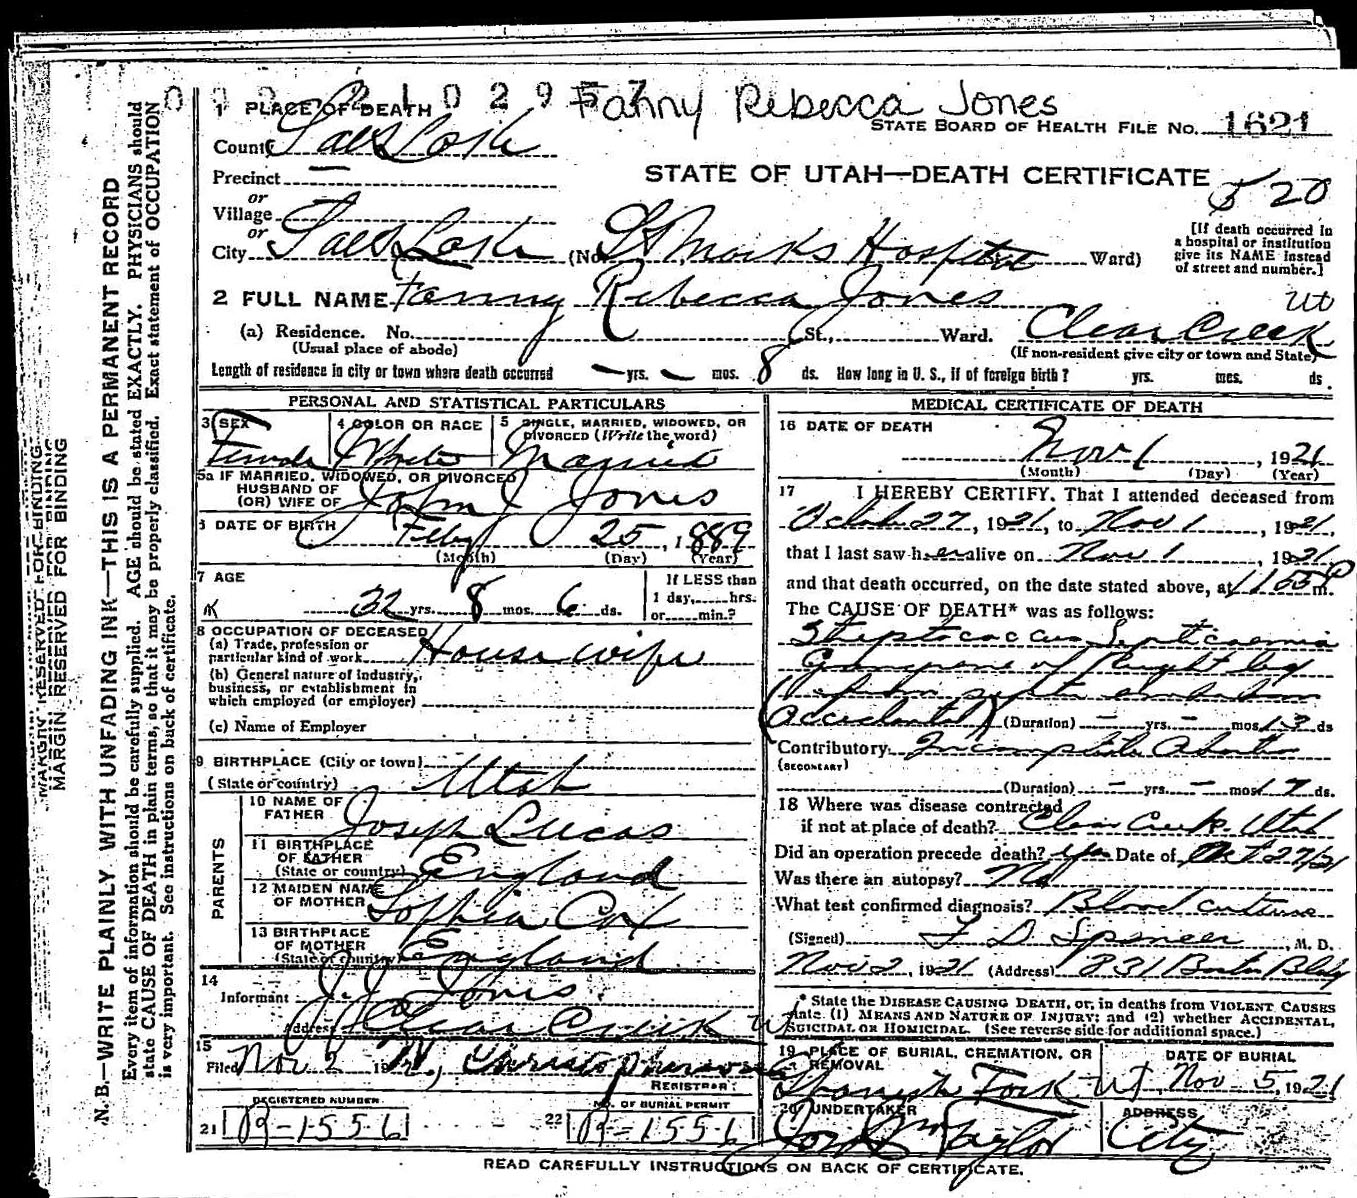 Fanny Rebecca Jones
1 PLACE OF DEATH
STATE BOARD OF HEALTH FILE No. 1621
County Salt Lake
STATE OF UTAH—DEATH CERTIFICATE
Precinct
520
or
Village
or
City Salt Lake (No. St Marks Hospital Ward)
[If death occurred in
a hospital or institution
give its NAME instead
of street and number.]
2 FULL NAME Fanny Rebecca Jones
(a) Residence. No. St., Ward. Clear Creek Ut
(Usual place of abode) (If non-resident give city or town and State)
Length of residence in city or town where death occurred — yrs. — mos. 8 ds. How long in U. S., if of foreign birth? yrs. mos. ds.
PERSONAL AND STATISTICAL PARTICULARS
3 SEX Female
4 COLOR OR RACE White
5 SINGLE, MARRIED, WIDOWED, OR
DIVORCED (Write the word)
Married
5a IF MARRIED, WIDOWED, OR DIVORCED
HUSBAND OF
(OR) WIFE OF John J Jones
6 DATE OF BIRTH Feby 25, 1889
(Month) (Day) (Year)
7 AGE
32 yrs. 8 mos. 6 ds.
If LESS than
1 day, hrs.
or min.?
8 OCCUPATION OF DECEASED
(a) Trade, profession or
particular kind of work Housewife
(b) General nature of industry,
business, or establishment in
which employed (or employer)
(c) Name of Employer
9 BIRTHPLACE (City or town)
(State or country) Utah
PARENTS
10 NAME OF
FATHER Joseph Lucas
11 BIRTHPLACE
OF FATHER
(State or country) England
12 MAIDEN NAME
OF MOTHER Sophia Cox
13 BIRTHPLACE
OF MOTHER
(State or country) England
14
Informant J. J. Jones
Address Clear Creek Ut
15
Filed Nov 2 192
REGISTRAR
REGISTERED NUMBER
21 R-1556
NO. OF BURIAL PERMIT
22 R-1556
MEDICAL CERTIFICATE OF DEATH
16 DATE OF DEATH
Nov 1, 1921
(Month) (Day) (Year)
17 I HEREBY CERTIFY, That I attended deceased from
October 27, 1921, to Nov 1, 1921,
that I last saw her alive on Nov 1, 1921,
and that death occurred, on the date stated above, at 11 55 P m.
The CAUSE OF DEATH* was as follows:
Streptococcus Septicaemia
Gangrene of Right leg
(Accidental) (Duration) — yrs. — mos. 13 ds
Contributory Incomplete Abortion
(SECONDARY)
(Duration) — yrs. — mos. 17 ds.
18 Where was disease contracted
if not at place of death? Clear Creek Utah
Did an operation precede death? yes Date of Oct 27/21
Was there an autopsy? No
What test confirmed diagnosis? Blood culture
(Signed) F D Spencer, M. D.
Nov 2, 1921 (Address) 831 Boston Bldg
* State the DISEASE CAUSING DEATH, or, in deaths from VIOLENT CAUSES
state (1) MEANS AND NATURE OF INJURY; and (2) whether ACCIDENTAL,
SUICIDAL OR HOMICIDAL. (See reverse side for additional space.)
19 PLACE OF BURIAL, CREMATION, OR
REMOVAL
Spanish Fork Ut
DATE OF BURIAL
Nov 5, 1921
20 UNDERTAKER
Taylor
ADDRESS
City
READ CAREFULLY INSTRUCTIONS ON BACK OF CERTIFICATE.
MARGIN RESERVED FOR BINDING
MARGIN RESERVED FOR BINDING
N. B.—WRITE PLAINLY WITH UNFADING INK—THIS IS A PERMANENT RECORD
Every item of information should be carefully supplied. AGE should be stated EXACTLY. PHYSICIANS should
state CAUSE OF DEATH in plain terms, so that it may be properly classified. Exact statement of OCCUPATION
is very important. See instructions on back of certificate.